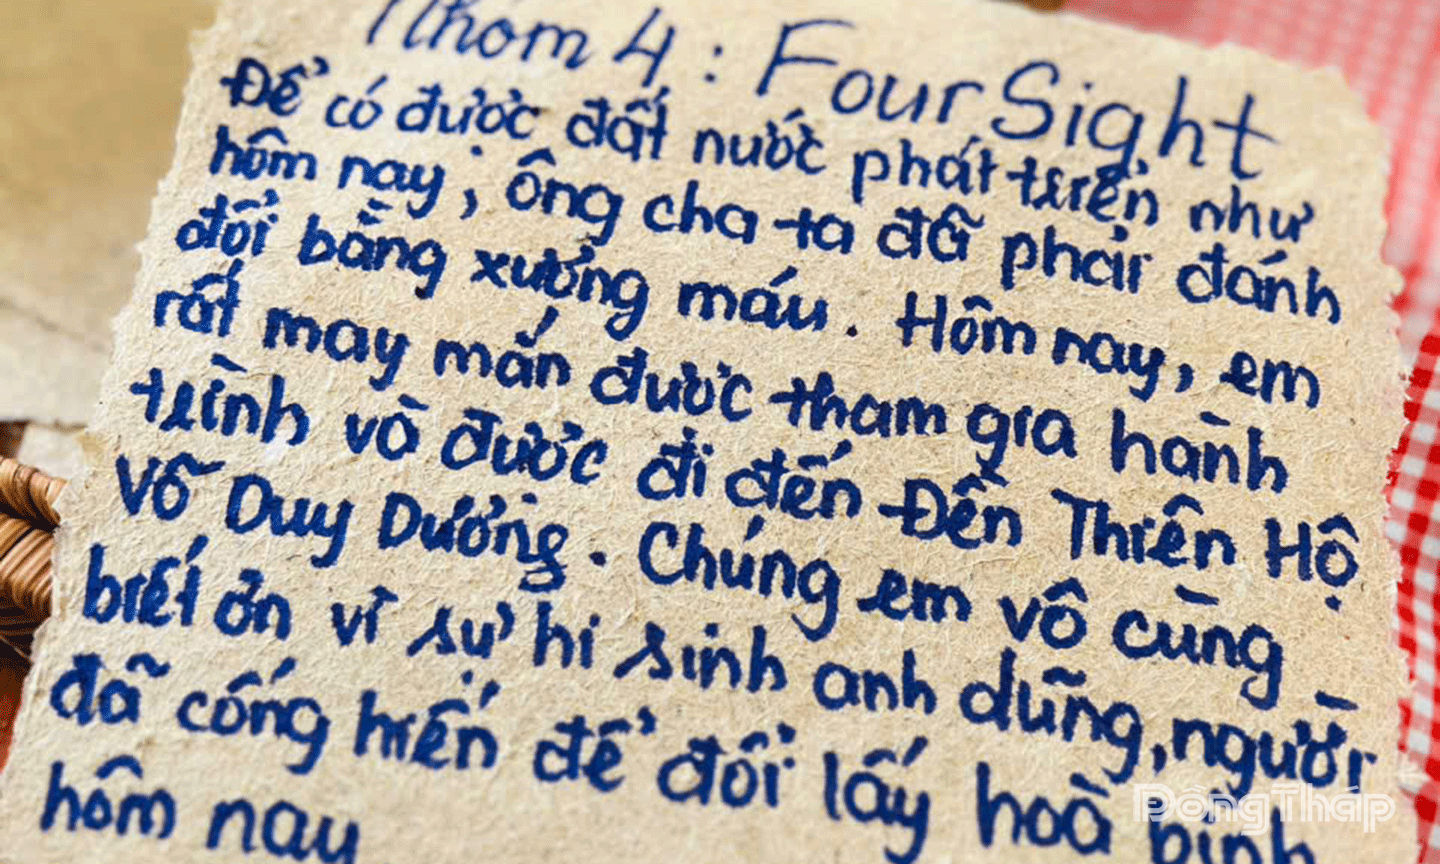 Nhóm 4 : Four Sight
Để có được đất nước phát triển như
hôm nay, ông cha ta đã phải đánh
đổi bằng xương máu. Hôm nay, em
rất may mắn được tham gia hành
trình và được đi đến Đền Thiên Hộ
Võ Duy Dương. Chúng em vô cùng
biết ơn vì sự hi sinh anh dũng, người
đã cống hiến để đổi lấy hoà bình
hôm nay
ĐồngTháp